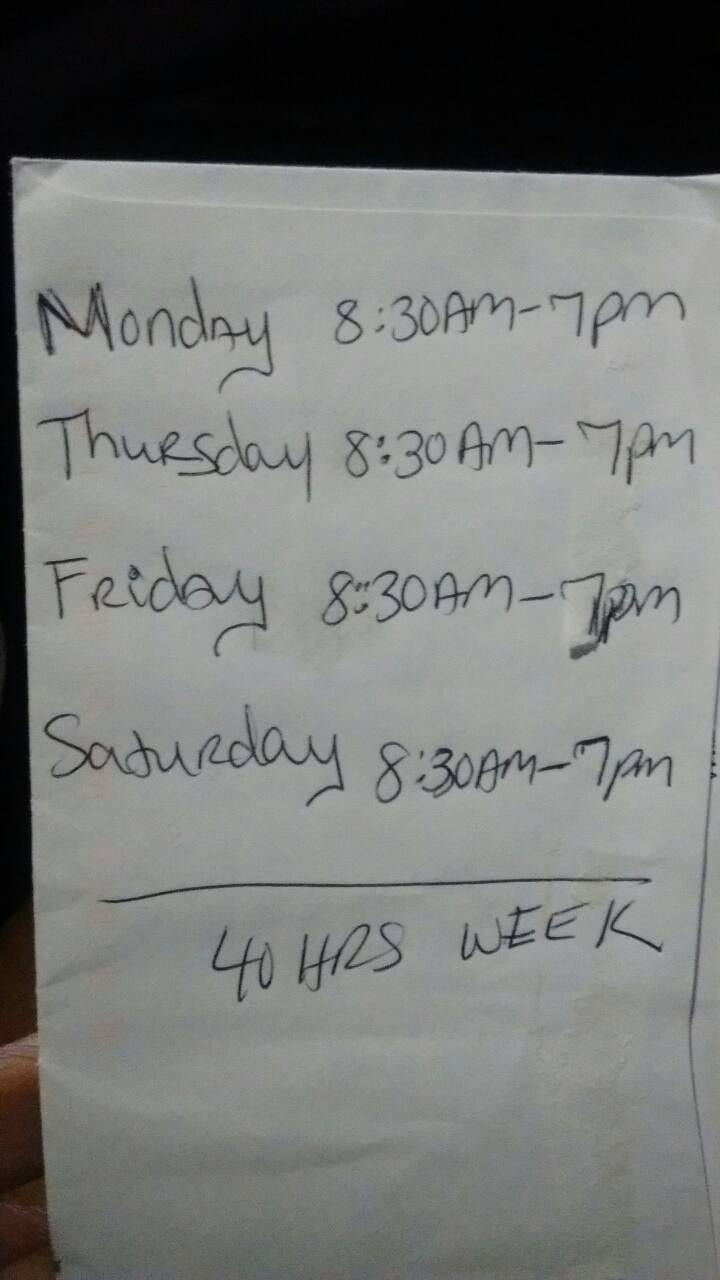 Monday 8:30AM-7pm
Thursday 8:30AM-7pm
Friday 8:30AM-7pm
Saturday 8:30AM-7pm
40 HRS WEEK